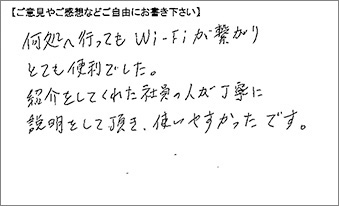 【ご意見やご感想などご自由にお書き下さい】
何処へ行ってもWi-Fiが繋がり
とても便利でした。
紹介をしてくれた社員の人が丁寧に
説明をして頂き、使いやすかったです。